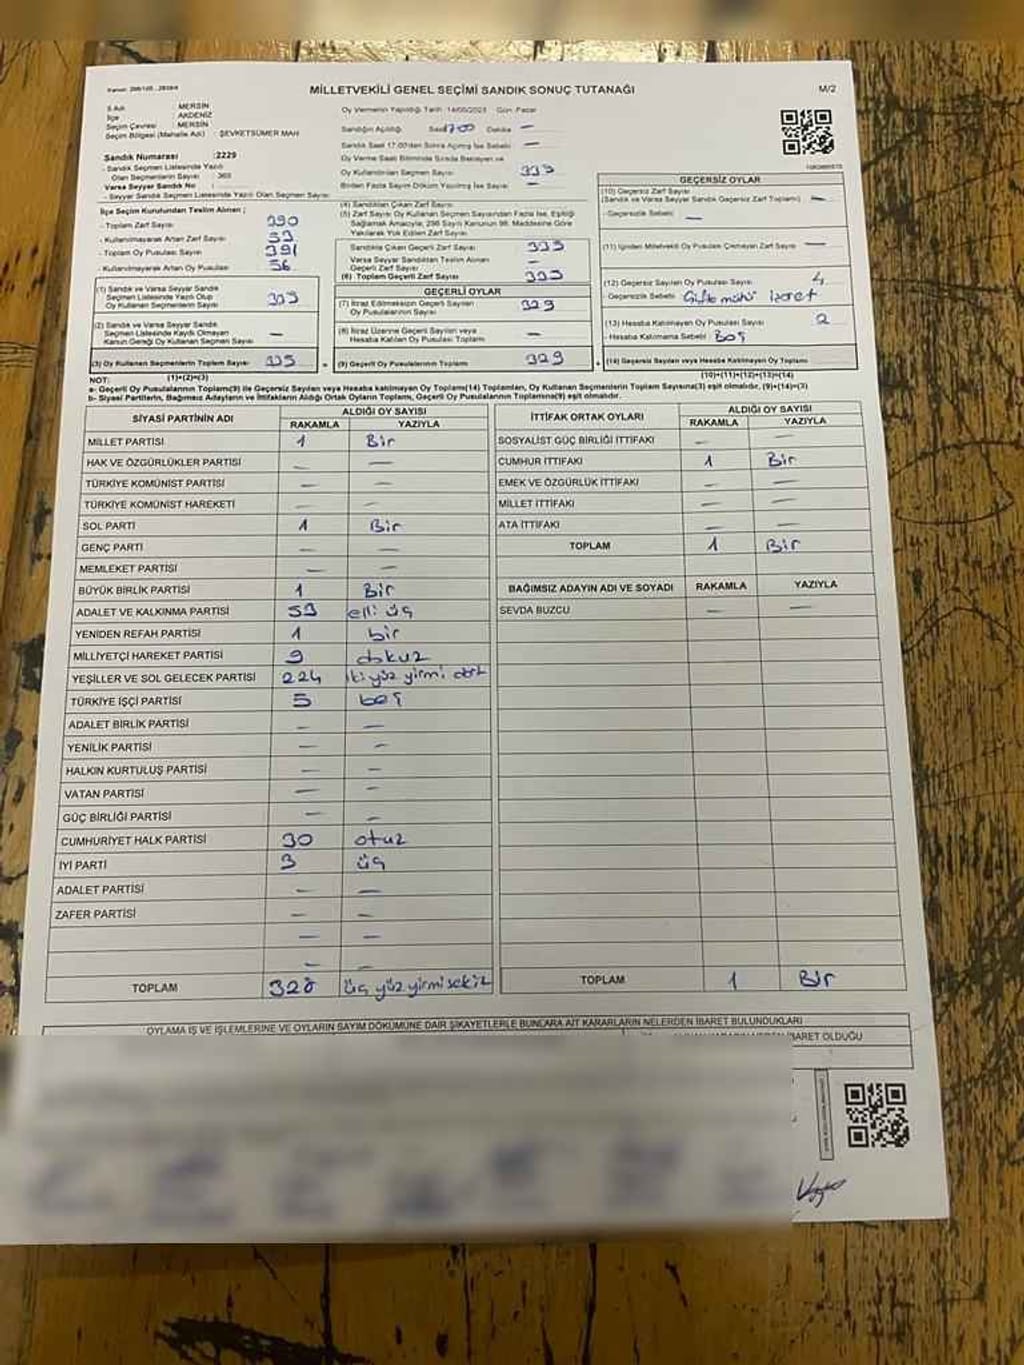 MİLLETVEKİLİ GENEL SEÇİMİ SANDIK SONUÇ TUTANAĞI
M/2
İl Adı : MERSİN
İlçe : AKDENİZ
Seçim Çevresi : MERSİN
Seçim Bölgesi (Mahalle Adı) : ŞEVKETSÜMER MAH
Sandık Numarası :2229
- Sandık Seçmen Listesinde Yazılı
Olan Seçmenlerin Sayısı : 360
Varsa Seyyar Sandık No :
- Seyyar Sandık Seçmen Listesinde Yazılı Olan Seçmen Sayısı
İlçe Seçim Kurulundan Teslim Alınan ;
- Toplam Zarf Sayısı 390
- Kullanılmayarak Artan Zarf Sayısı
- Toplam Oy Pusulası Sayısı 391
- Kullanılmayarak Artan Oy Pusulası 56
(1) Sandık ve Varsa Seyyar Sandık
Seçmen Listesinde Yazılı Olup
Oy Kullanan Seçmenlerin Sayısı
(2) Sandık ve Varsa Seyyar Sandık
Seçmen Listesinde Kaydı Olmayan
Kanun Gereği Oy Kullanan Seçmen Sayısı —
(3) Oy Kullanan Seçmenlerin Toplam Sayısı 335
(1)+(2)=(3)
Oy Vermenin Yapıldığı Tarih : 14/05/2023 Gün : Pazar
Sandığın Açıldığı Saat Dakika —
Sandık Saat 17:00'den Sonra Açılmış İse Sebebi —
Oy Verme Saati Bitiminde Sırada Bekleyen ve
Oy Kullandırılan Seçmen Sayısı
Birden Fazla Sayım Döküm Yapılmış İse Sayısı —
(4) Sandıktan Çıkan Zarf Sayısı
(5) Zarf Sayısı Oy Kullanan Seçmen Sayısından Fazla İse, Eşitliği
Sağlamak Amacıyla, 298 Sayılı Kanunun 98. Maddesine Göre
Yakılarak Yok Edilen Zarf Sayısı
Sandıkta Çıkan Geçerli Zarf Sayısı 335
Varsa Seyyar Sandıktan Teslim Alınan
Geçerli Zarf Sayısı —
(6) Toplam Geçerli Zarf Sayısı 335
GEÇERLİ OYLAR
(7) İtiraz Edilmeksizin Geçerli Sayılan
Oy Pusulalarının Sayısı 329
(8) İtiraz Üzerine Geçerli Sayılan veya
Hesaba Katılan Oy Pusulası Toplamı —
(9) Geçerli Oy Pusulalarının Toplamı 329
GEÇERSİZ OYLAR
(10) Geçersiz Zarf Sayısı
(Sandık ve Varsa Seyyar Sandık Geçersiz Zarf Toplamı) —
-Geçersizlik Sebebi —
(11) İçinden Milletvekili Oy Pusulası Çıkmayan Zarf Sayısı —
(12) Geçersiz Sayılan Oy Pusulası Sayısı 4
- Geçersizlik Sebebi Çift mühür İşaret
(13) Hesaba Katılmayan Oy Pusulası Sayısı 2
- Hesaba Katılmama Sebebi Boş
(14) Geçersiz Sayılan veya Hesaba Katılmayan Oy Pusulası Toplamı
(10)+(11)+(12)+(13)=(14)
NOT:
a- Geçerli Oy Pusulalarının Toplamı(9) ile Geçersiz Sayılan veya Hesaba Katılmayan Oy Toplam(14) Toplamları, Oy Kullanan Seçmenlerin Toplam Sayısına(3) eşit olmalıdır, (9)+(14)=(3)
b- Siyasi Partilerin, Bağımsız Adayların ve İttifakların Aldığı Ortak Oyların Toplamı, Geçerli Oy Pusulalarının Toplamına(9) eşit olmalıdır.
SİYASİ PARTİNİN ADI ALDIĞI OY SAYISI
RAKAMLA YAZIYLA
MİLLET PARTİSİ 1 Bir
HAK VE ÖZGÜRLÜKLER PARTİSİ — —
TÜRKİYE KOMÜNİST PARTİSİ — —
TÜRKİYE KOMÜNİST HAREKETİ — —
SOL PARTİ 1 Bir
GENÇ PARTİ — —
MEMLEKET PARTİSİ — —
BÜYÜK BİRLİK PARTİSİ 1 Bir
ADALET VE KALKINMA PARTİSİ 53 elli üç
YENİDEN REFAH PARTİSİ 1 bir
MİLLİYETÇİ HAREKET PARTİSİ 9 dokuz
YEŞİLLER VE SOL GELECEK PARTİSİ 224 iki yüz yirmi dört
TÜRKİYE İŞÇİ PARTİSİ 5 beş
ADALET BİRLİK PARTİSİ — —
YENİLİK PARTİSİ — —
HALKIN KURTULUŞ PARTİSİ — —
VATAN PARTİSİ — —
GÜÇ BİRLİĞİ PARTİSİ — —
CUMHURİYET HALK PARTİSİ 30 otuz
İYİ PARTİ 3 üç
ADALET PARTİSİ — —
ZAFER PARTİSİ — —
— —
— —
TOPLAM 328 üç yüz yirmi sekiz
İTTİFAK ORTAK OYLARI ALDIĞI OY SAYISI
RAKAMLA YAZIYLA
SOSYALİST GÜÇ BİRLİĞİ İTTİFAKI — —
CUMHUR İTTİFAKI 1 Bir
EMEK VE ÖZGÜRLÜK İTTİFAKI — —
MİLLET İTTİFAKI — —
ATA İTTİFAKI — —
TOPLAM 1 Bir
BAĞIMSIZ ADAYIN ADI VE SOYADI RAKAMLA YAZIYLA
SEVDA BUZCU — —
TOPLAM 1 Bir
OYLAMA İŞ VE İŞLEMLERİNE VE OYLARIN SAYIM DÖKÜMÜNE DAİR ŞİKAYETLERLE BUNLARA AİT KARARLARIN NELERDEN İBARET BULUNDUKLARI
İBARET OLDUĞU